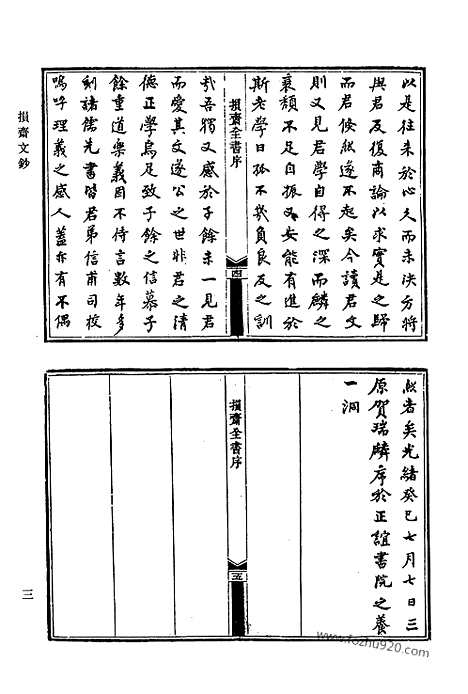 以是往来於心久而未決方將
與君反復商論以求實是之歸
而君倏然遂不起矣今讀君文
則又見君學自得之深而麟之
衰頹不足自振又安能有進於
斯老學日孤不幾負良友之訓
損齋全書序
四
哉吾獨又感於子餘未一見君
而愛其文遂公之世非君之清
德正學烏足致子餘之信慕子
餘重道樂義固不待言數年多
刻諸儒先書皆君弟信甫司校
嗚呼理義之感人蓋亦有不偶
損齋文鈔
然者矣光緒癸巳七月七日三
原賀瑞麟序於正誼書院之養
一洞
損齋全書序
五
三
www.fozhu920.com